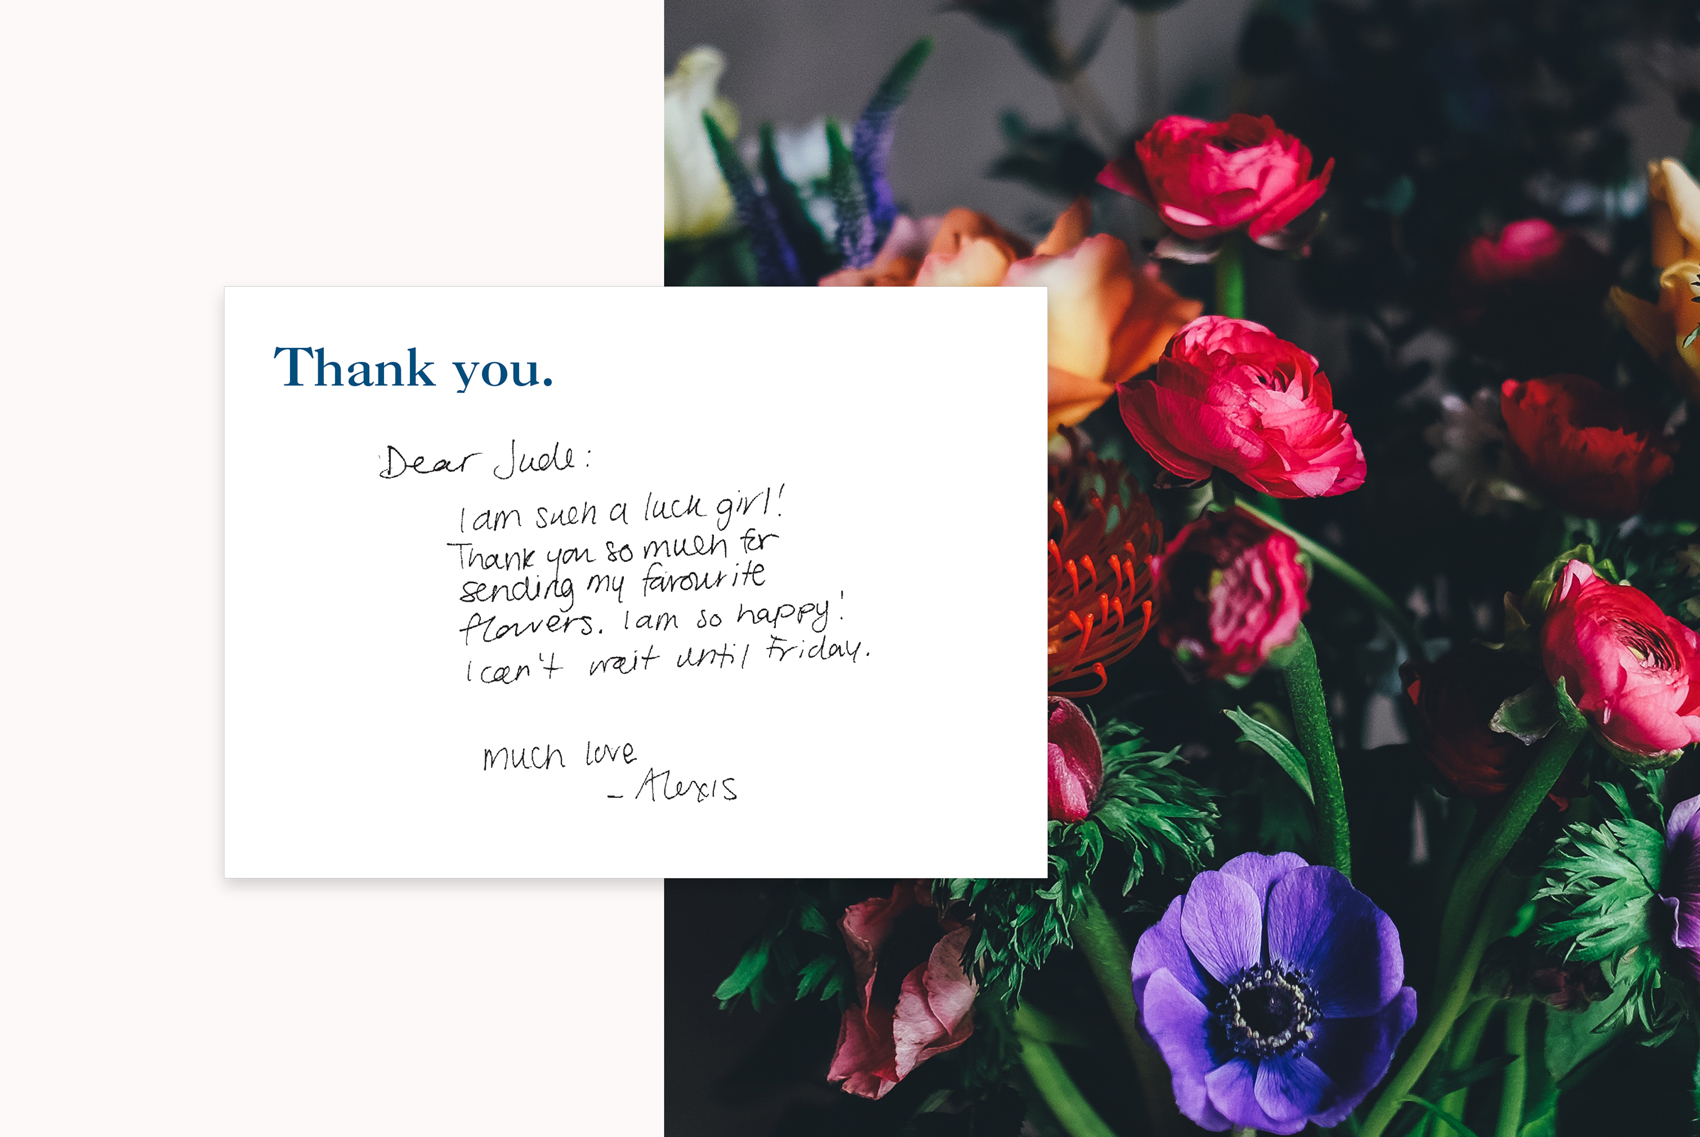 Thank you.
Dear Jude:
I am such a luck girl!
Thank you so much for
sending my favourite
flowers. I am so happy!
I can't wait until Friday.
much love
- Alexis